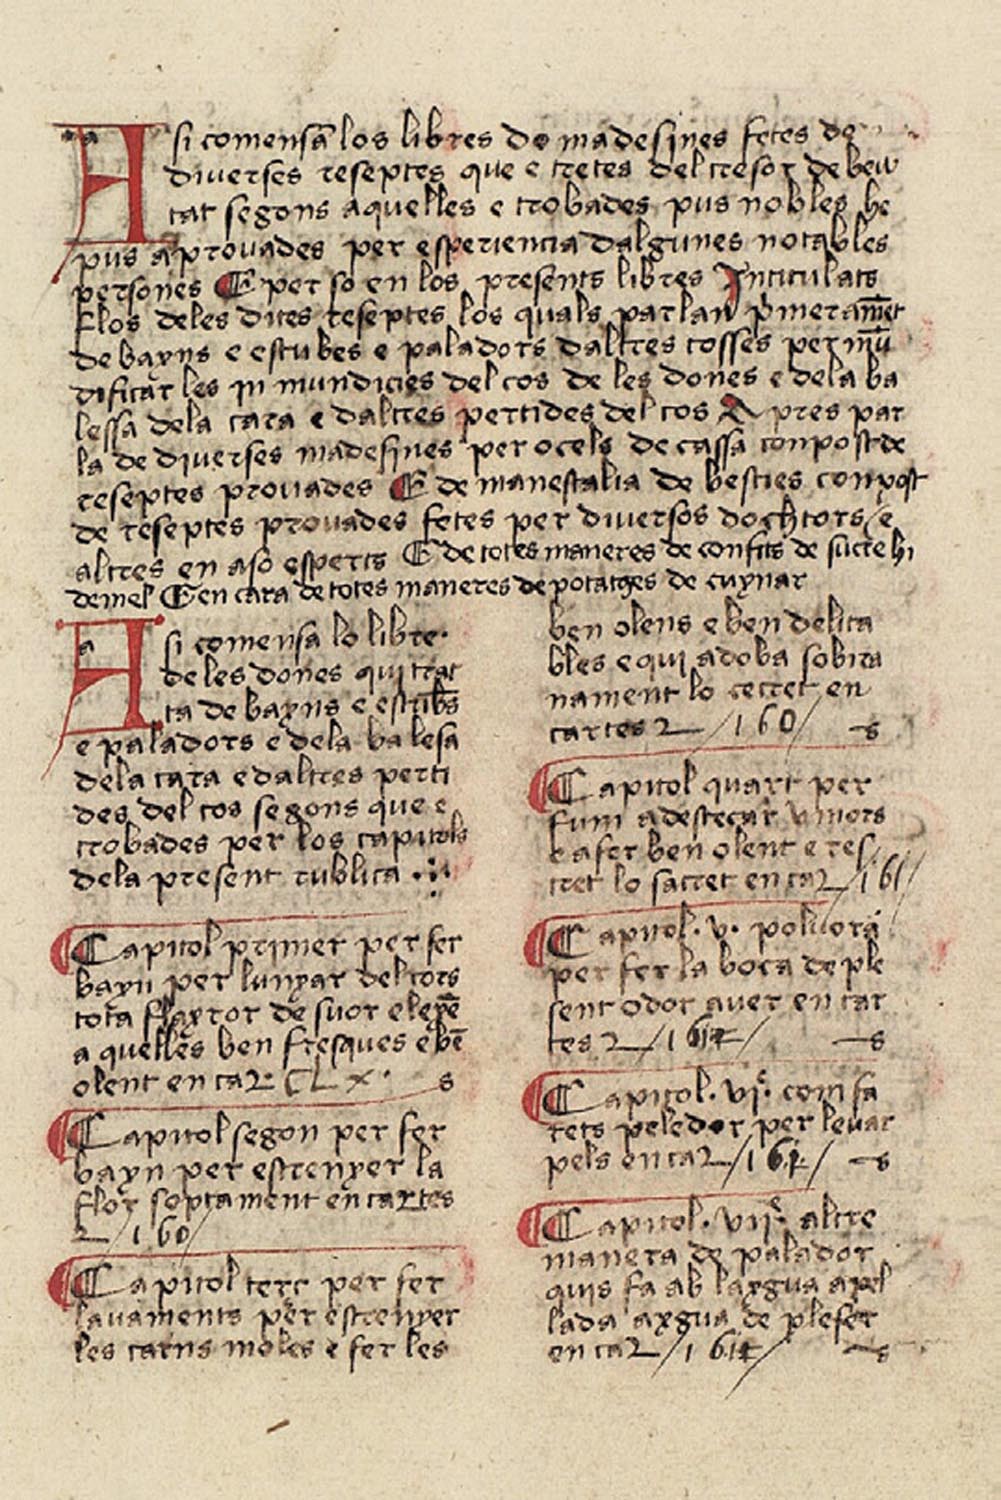 A si comensa los libres de madesines fetes de
diverses reseptes que e tretes del tresor de beu
tat segons aquelles e trobades pus nobles he
pus aprovades per esperiencia dalgunes notables
persones E per so en los presents libres Intitulats
Flos deles dites reseptes los quals parlan primerament
de bayns e estubes e paladors daltres cosses per mu
dificar les inmundicies del cos de les dones e dela ba
lessa dela cara e daltres pertides del cos A pres par
la de diverses madesines per ocels de cassa conpost de
reseptes provades E de manescalia de besties conpost
de reseptes provades fetes per diversos dochtors / e
altres en aso esperts E de totes maneres de confits de sucre hi
de mel E en cara de totes maneres de potatges de cuynar
A si comensa lo libre
de les dones qui trac
ta de bayns e estubs
e paladors e dela balesa
dela cara e daltres perti
des del cos segons que e
trobades per los capitols
dela present rublica
Capitol primer per fer
bayn per lunyar del cors
tota flayror de suor e
aquelles ben fresques e be
olent en car CLX s
Capitol segon per fer
bayn per estrenyer la
flor en cartes
160
Capitol terc per fer
lavaments per estrenyer
les carns moles e fer les
ben olens e ben delita
bles e qui adoba sobira
nament lo cecret en
cartes /160/ s
Capitol quart per
fum a destecar vmors
e a fer ben olent e res
tret lo sacret en car /161/
Capitol .v. polvora
per fer la boca de ple
sent odor aver en car
tes /161/ s
Capitol .vi. com fa
rets peledor per levar
pels en car /161/ s
Capitol .vii. altre
manera de palador
quis fa ab laygua apel
lada axgua de plefer
en car /161/ s